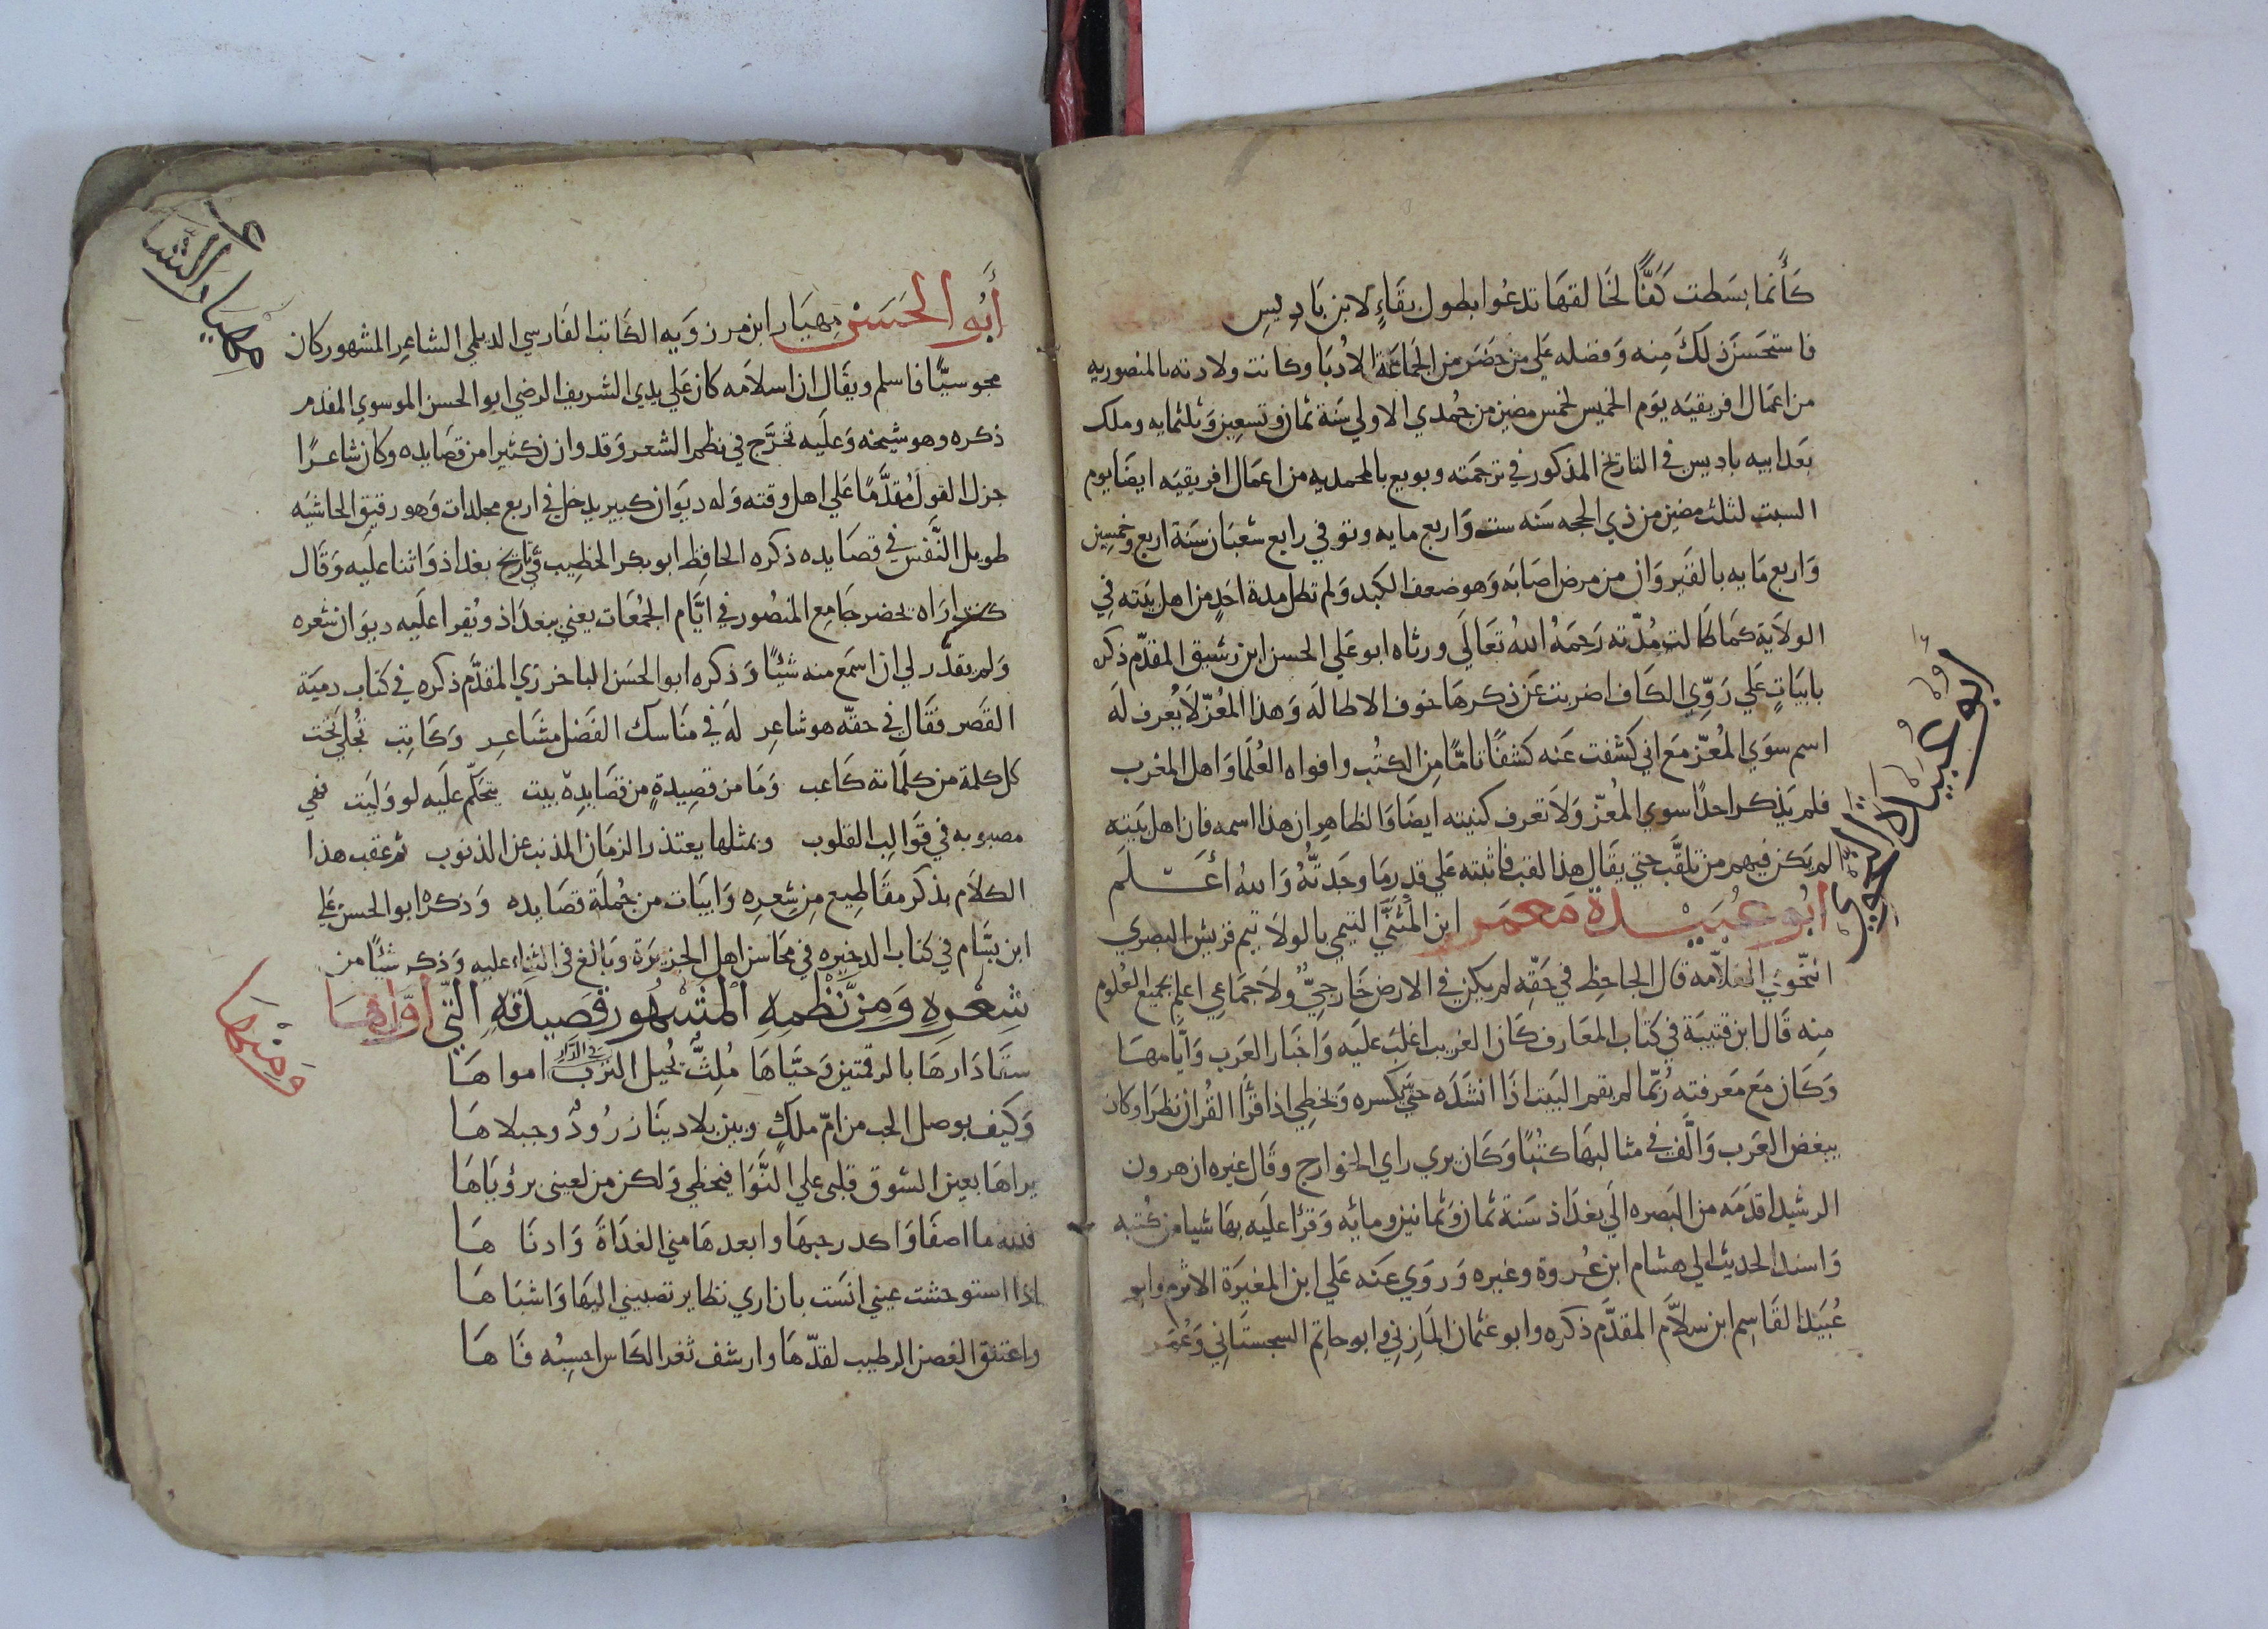 كَأنما بسَطت كَفًّا لخَالقهَا تدعُوا بطول بقَاءٍ لابن بَاديسِ
فاستحسَن ذلكَ مِنه وَفضله عَلي من حضَر من الجَماعَة الادُبَا وكانت ولادته بالمنصوريه
من اعمَال افريقيَه يوَم الخميس لخمس مضين من جُمدي الاولي سَنة ثمان وتسعِين وَثلثمايه وملك
بَعد ابيه باديس في التاريخ المذكور في ترجمَته وبويع بالمحمديه من اعمَال افريقيَه ايضَا يوم
السبت لثلث مضين من ذي الحجه سَنه ست وَاربع مايه وتوفي رابع شعبَان سَنة اربع وخمسِين
وَاربع مَايه بالقَيروَان من مرض اصَابَه وَهو ضعف الكبد وَلم تطل مدة احَدٍ من اهل بيَته في
الولاَيَة كمَا طَالت مُدّته رَحمَهُ اللهُ تعَالَي ورثاه ابو عَلي الحسن ابن رشيق المقدّم ذكره
بابيَاتٍ عَلي رَوِّي الكَاف اضربت عَن ذكرهَا خوف الاطالَه وَهذا المُعزّ لاَ يُعرف لَه
اسم سوَي المُعزّ مَع اني كشفت عَنه كشفًا تامًّا مِن الكتُب وافواه العُلمَا وَاهل المغرب
فلم يَذكر احدًا سوي المُعزّ وَلاَ تعرف كنيته ايضَا وَالظاهِر ان هذا اسمه فان اهل بَيته
لم يَكن فيهم من تلقَّب حتي يقَال هذا لقب فاثبته عَلي قدرِ مَا وجَدتُّهُ وَاللهُ أَعَـلَم
ابُو عُبَيْدة مَعمَر ابن المُثنَّي التيمي بالولاَ تيم قريش البصري
النحّوي العَلاّمه قال الجاحِظ في حَقّهِ لم يكن في الارض خَارجيٌّ ولاَ جمَاعي اعلم بجميع العُلوم
مِنه قَال ابن قتيبَة في كتاب المعَارف كَان الغريب اغلبَ علَيه وَاخبَار العَرب وَايَّامهَا
وَكَان مَع مَعرفته رُبّمَا لم يقم البيَت اذَا انشدَه حتي يَكسره وَيخطي اذا قرَا القُران نظرَا وكان
يبغض العَرب وَالَّف في مثالبهَا كتُبًا وَكَان يري راي الخوارج وقَال غيره ان هرون
الرشيد اقدَمَه من البَصره الَي بغدَاذ سَنة ثمان وَثمانين ومائه وَقرَا علَيه بهَا شيا من كتُبه
وَاسند الحديث الي هشام ابن عُروة وغيره وَروَي عَنه عَلي ابن المغيرَة الاثرم وابو
عُبيَد القَاسِم ابن سلاَّم المقدَّم ذكره وابو عثمان المَازِنِي وابو حاتم السجستَانِي وَعُمَر
ابو عبيدة النحوي
أَبُو الحَسَن مِهيَار ابن مرزوَيه الكَاتب الفَارسي الديلمي الشاعِر المشهور كان
مجوسيًّا فاسلم ويقَال ان اسلاَمه كان عَلي يدي الشريف الرضي ابو الحسن الموسوي المقدم
ذكره وهو شيخه وَعلَيه تخرَّج في نظم الشعر وَقد وازن كثيرا من قصَايده وكان شاعـرًا
جزل القول مُقدَّمًا عَلي اهل وقته وَله ديوَان كبير يدخل في اربع مجلدات وَهو رقيق الحاشيَه
طويل النَّفس في قصَايده ذكره الحافِظ ابو بكر الخطِيب في تاريخ بغداذ وَاثنا علَيه وَقَال
كنت ارَاه يحضر جَامِع المنصُور في ايَّام الجمُعَات يعني ببغدَاذ ويُقرا علَيه ديوَان شعره
وَلم يقدَّر لي ان اسمَع منه شَيئًا وَذكره ابو الحسَن الباخرزي المقدَّم ذكره في كتَاب دميَة
القَصر فقَال في حقّه هو شاعِر لَه في منَاسك الفَضل مشَاعـر وَكَاتِب تجُلي تحَت
كل كلمة من كلَماته كَاعب وَمَا من قصِيدةٍ من قصَايدِهِ بيت يتحَكّم علَيه لو وَليَت فهي
مصبوبه في قوَالب القلوب وبمثلها يعتذر الزمَان المذنب عن الذنوب ثم عقب هذا
الكلاَم بذكَر مقَاطِيع مِن شِعرِه وَابيَات من جُملَة قصَايده وَذكره ابو الحسن عَلي
ابن بسَّام في كتاب الدخيره في محَاسن اهل الجزيرَة وبَالغ في الثناء عليه وَذكر شيئًا من
شِعْرِهِ وَمِن نَّظْمِهِ المَشهُور قَصِيدَتهِ التِّي أوّلهـَا
سَقَا دَارهَا بالرقتين وَحيَّاهَا مُلِثّ يُحيل الترب في الدَّار امواهَـا
وَكيف بوصل الحب من امّ ملكٍ وبين بلادينَا زرُودٌ وجبلاهَـا
يراهَا بعين الشوق قلبى علي النَّوَا فيحظي وَلكن من لعينى برؤيَاهَا
فلله ما اصفَا وَاكدر حبهَا وابعدهَا مني الغدَاةَ وَادنَا هَـا
اذا استوحشت عيني انسَت بان اري نظاير تصبيني اليهَا وَاشبَاهَـا
واعتنق الغصن الرطيب لقدّهَا وارشف ثغر الكَاس احسِبُه فَاهَـا
مهيار الشاعر
ومنها